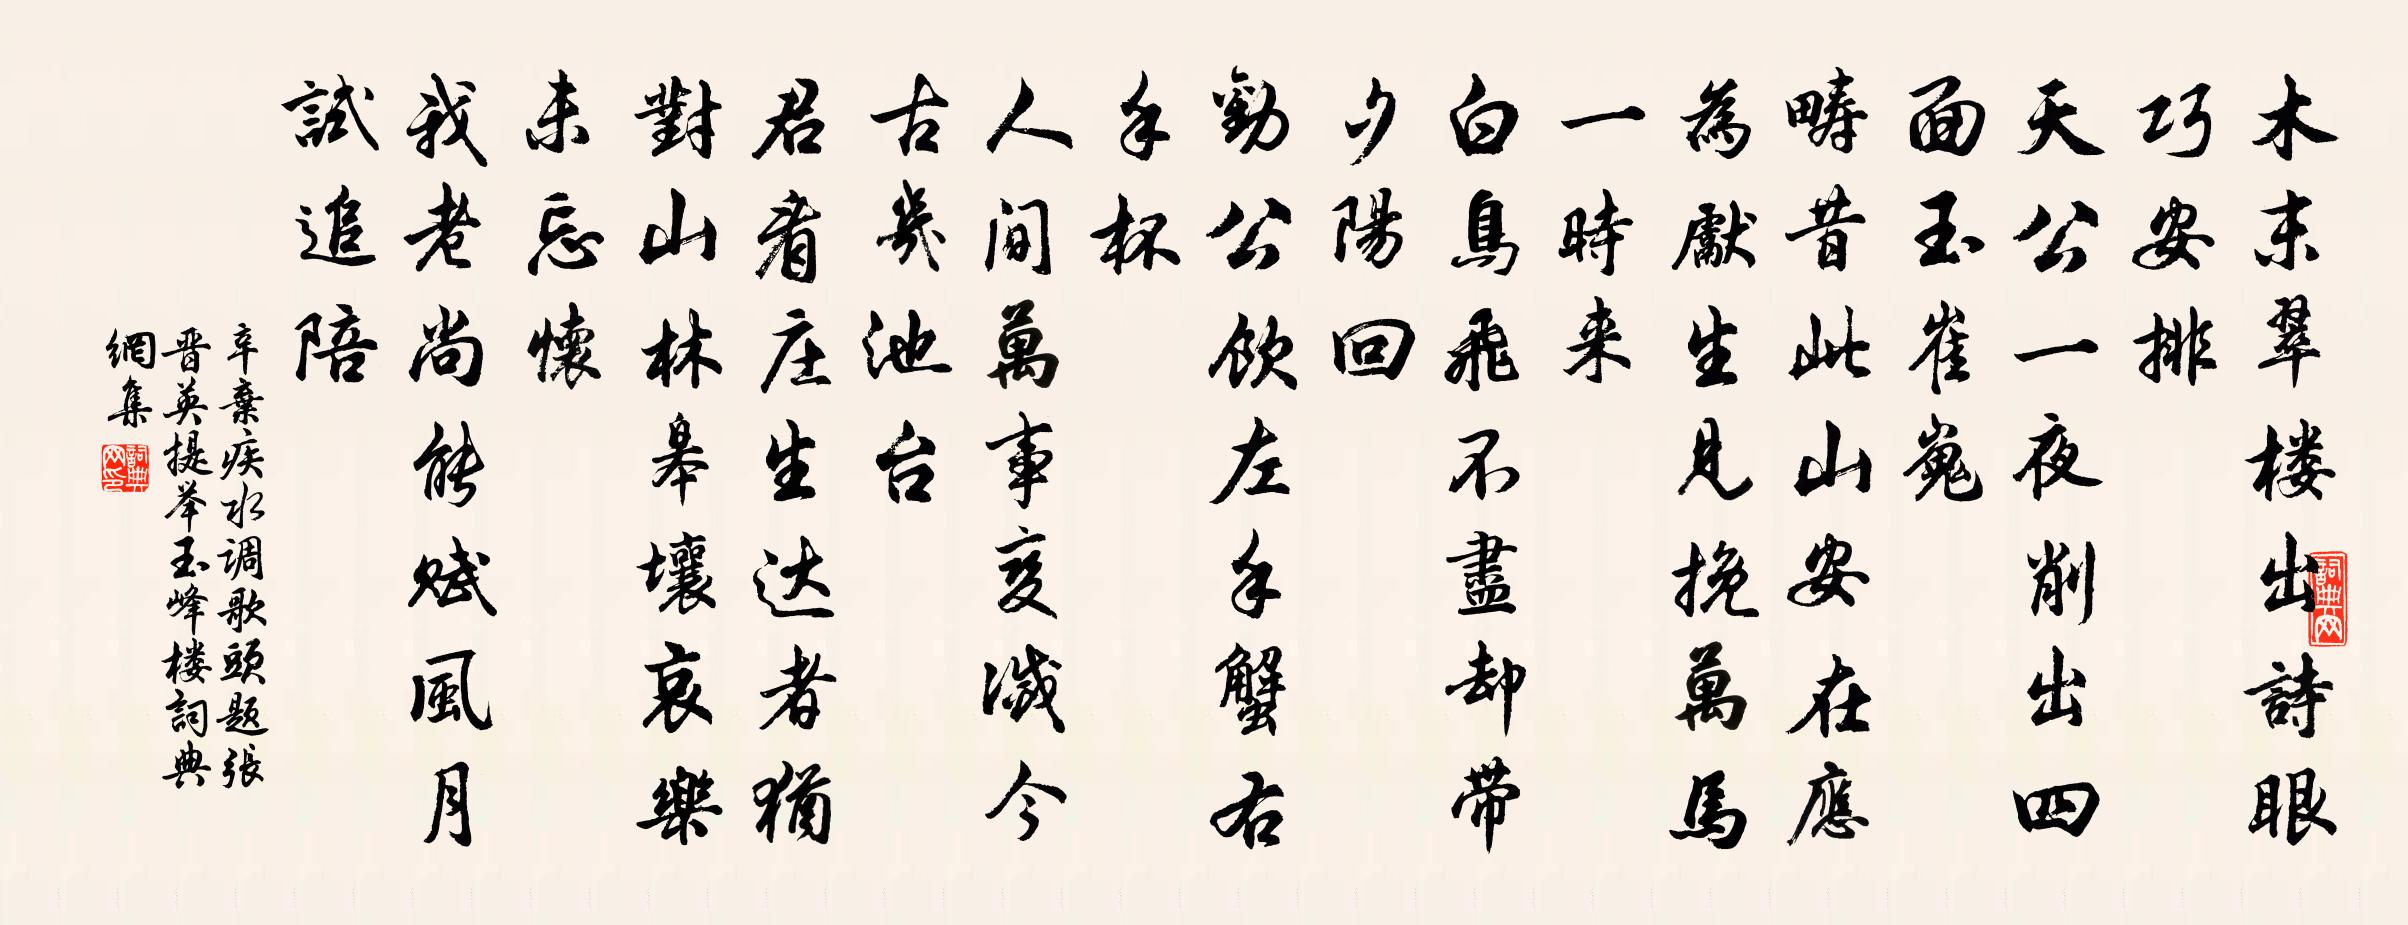 木末翠楼出詩眼
巧安排
天公一夜削出四
面玉崔嵬
疇昔此山安在應
為獻生見挽萬馬
一時来
白鳥飛不盡却帶
夕陽回
勸公飲左手蟹右
手杯
人间萬事变滅今
古幾池台
君看庄生达者猶
對山林皋壤哀樂
未忘懷
我老尚能赋風月
試追陪
辛棄疾水调歌頭题張
晋英提举玉峰楼詞典
網集
詞典网
詞典网印